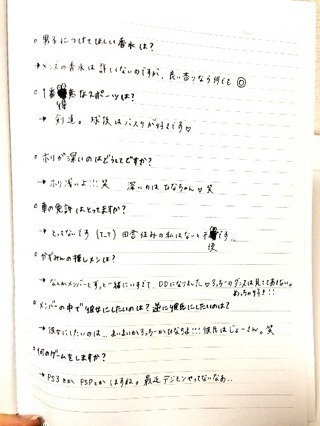 ○ 男子につけてほしい香水は？
→ メンズの香水は詳しくないのですが、良い香りなら何でも◎
○ 1番優なスポーツは？
→ 剣道。球技はバスケが好きです♡
○ ホリが深いのはどうしてですか？
→ ホリ浅いよ!!!笑 深いのはひなちゃん♡笑
○ 車の免許はとってますか？
→ とってないです(T_T) 田舎住みの私はないと不便です…
○ かずみんの推しメンは？
→ なんかメンバーとずっと一緒にいすぎて、DDになりました♡ ダンスは見てて あきない。めっちゃ好き!!
○ メンバーの中で彼女にしたいのは？逆に彼氏にしたいのは？
→ 彼女にしたいのは… まいまいか ひなりよ!!! 彼氏はじょーさん。笑
○ 何のゲームをしますか？
→ PS3とか PSPとか しますね。最近デジモンやってないなぁ..